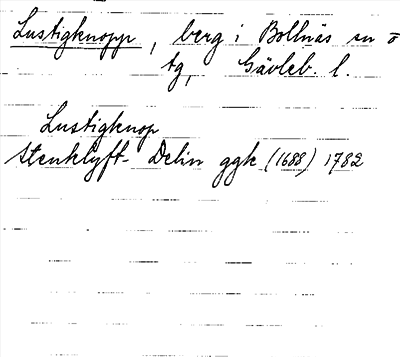 Lustigknopp, berg i Bollnäs sn o
tg, Gävleb. l.
Lustigknop
Stenklyft- Delin ggk (1688) 1782